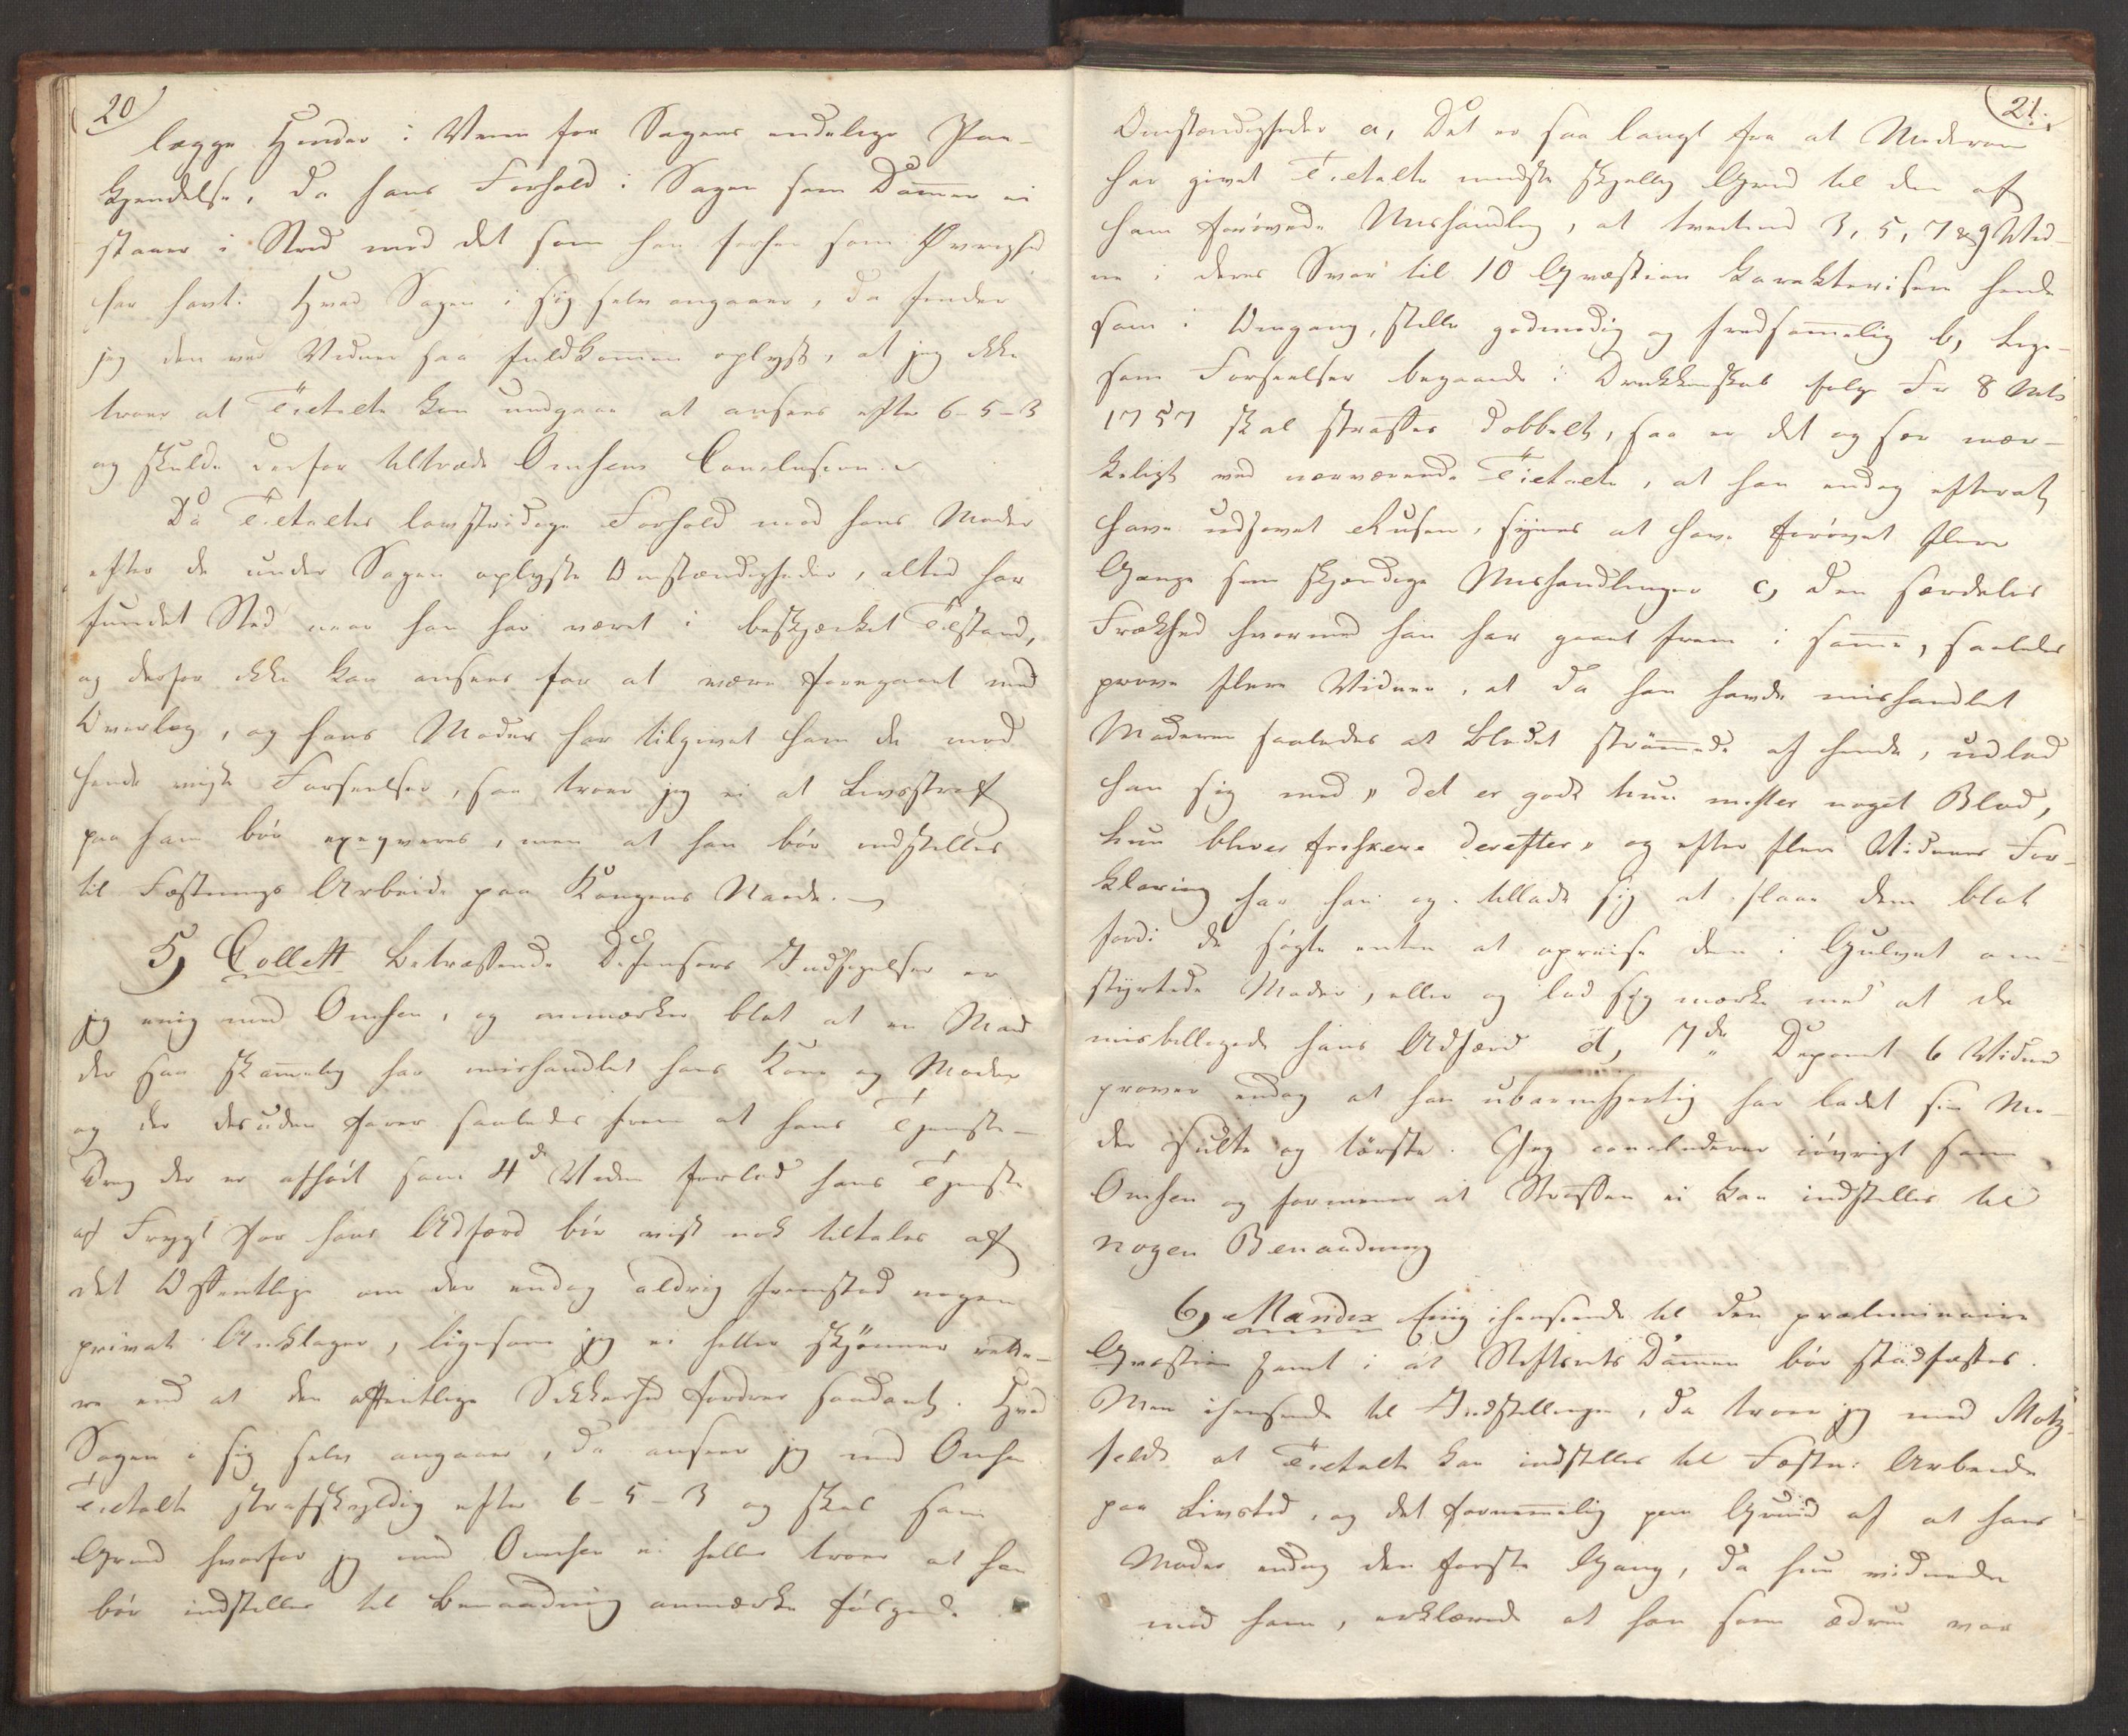 20
lægge Hinder i Veien for Sagens endelige Paa-
kjendelse, da hans Forhold i Sagen som Dommer ei
staaer i Strid med det som han forhen som Øvrighed
har havt. Hvad Sagen i sig selv angaaer, da finder
jeg den ved Vidner saa fuldkommen oplyst, at jeg ikke
troer at Tiltalte kan undgaae at ansees efter 6-5-3
og skulde derfor tiltræde Omsens Conclusion.
Da Tiltaltes lovstridige Forhold mod hans Moder
efter de under Sagen oplyste Omstændigheder, altid har
fundet Sted naar han har været i beskjænket Tilstand,
og derfor ikke kan ansees for at være foregaaet med
Overlæg, og hans Moder har tilgivet ham de mod
hende viiste Forseelser, saa troer jeg ei at Livsstraf
paa ham bør exeqveres, men at han bør indstilles
til Fæstnings Arbeide paa Kongens Naade.
5, Collett Betræffende Defensors Indsigelser er
jeg enig med Omsen, og anmærker blot at en Mand
der saa skammelig har mishandlet hans Kone og Moder
og der desuden farer saaledes frem at hans Tjeneste-
Dreng der er afhørt som 4de Vidne forlod hans Tjeneste
af Frygt for hans Adfærd bør vist nok tiltales af
det Offentlige om der endog aldrig fremstod nogen
privat Anklager, ligesom jeg ei heller skjønner rette-
re end at den offentlige Sikkerhed fordrer saadant. Hvad
Sagen i sig selv angaaer, da anseer jeg med Omsen
Tiltalte strafskyldig efter 6-5-3 og skal som
Grund hvorfor jeg med Omsen ei heller troer at han
bør indstilles til Benaadning anmærke følgende
21.
Omstændigheder a, Det er saa langt fra at Moderen
har givet Tiltalte mindste skjellig Grund til den af
ham forøvede Mishandling, at tvertimod 3, 5, 7 & 9 Vid-
ne i deres Svar til 10 Qvæstion karakterisere hende
som i Omgang, stille godmodig og fredsommelig b, Lige-
som Forseelser begaaede i Drukkenskab følge Fr 8
1757 skal straffes dobbelt, saa er det og her mær-
keligt ved nærværende Tiltalte, at han endog efterat
have udsovet Rusen, synes at have forøvet flere
Gange sine skjændige Mishandlinger c, Den særdeles
Frækhed hvormed han har gaaet frem i samme, saaledes
prove flere Vidner, at da han havde mishandlet
Moderen saaledes at Blodet strømmede af hende, udlod
han sig med „det er godt hun mister noget Blod,
hun bliver friskere derefter„ og efter flere Vidners For-
klaring har han og tilladt sig at slaae dem blot
fordi de søgte enten at opreise den i Gulvet om-
styrtede Moder, eller og lod sig mærke med at de
misbilligede hans Adfærd d, 7de Deponet 6 Vidne
prover endog at han ubarmhjertig har ladet sin Mo-
der sulte og tørste. Jeg concluderer iøvrigt som
Omsen og formener at Straffen ei kan indstilles til
nogen Benaadning
6, Mandix Enig ihenseende til den præliminaire
Qvæstion samt i at Stiftsrets Dommen bør stadfæstes.
Men ihenseende til Indstillingen, da troer jeg med Motz-
feldt at Tiltalte kan indstilles til Fæstn: Arbeide
paa Livstid, og det fornemmelig paa Grund af at hans
Moder endog den første Gang, da hun vidnede
mod ham, erklærede at han som ædru var